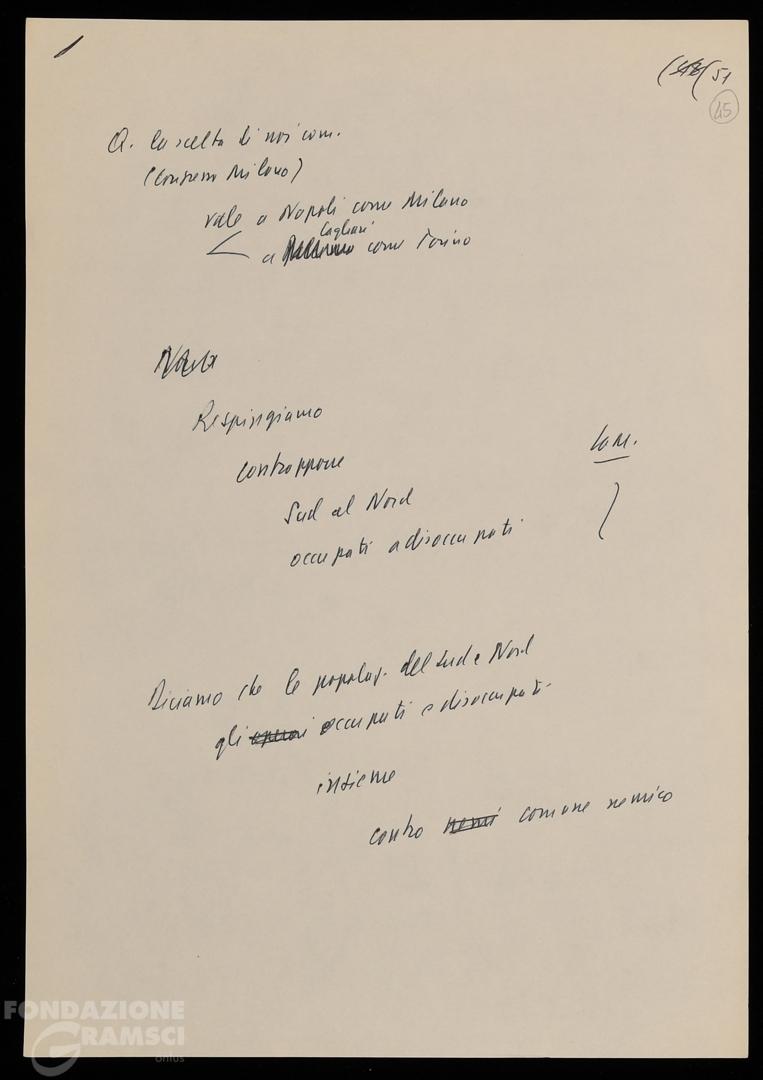 51
45
Q. La scelta di noi com.
(Congresso Milano)
vale a Napoli come Milano
Cagliari
a Palermo come Torino
Respingiamo
contrapporre
Sud al Nord
Lam.
occupati a disoccupati
Diciamo che le popolaz. del Sud e Nord
gli operai occupati e disoccupati
insieme
contro nemi comune nemico
FONDAZIONE
GRAMSCI
onlus